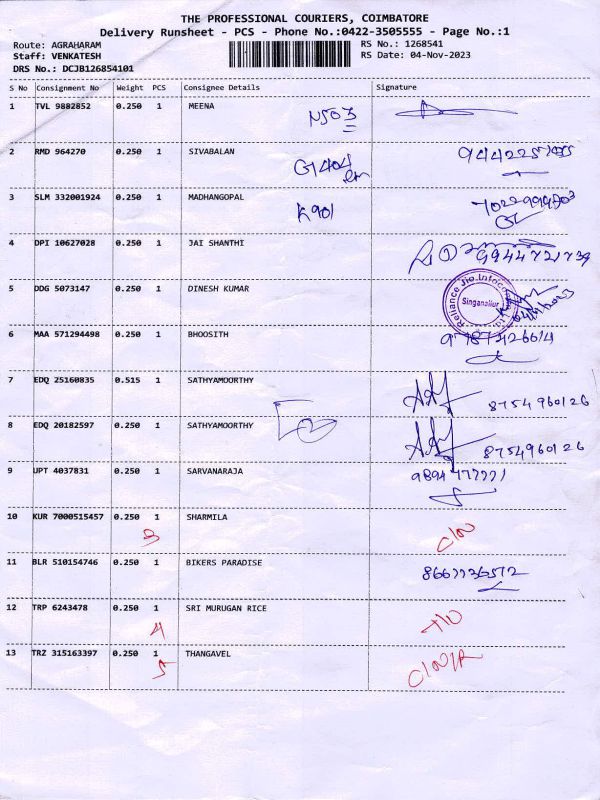 THE PROFESSIONAL COURIERS, COIMBATORE
Delivery Runsheet - PCS - Phone No.:0422-3505555 - Page No.:1
Route: AGRAHARAM RS No.: 1268541
Staff: VENKATESH RS Date: 04-Nov-2023
DRS No.: DCJB126854101
S No Consignment No Weight PCS Consignee Details Signature
1 TVL 9882852 0.250 1 MEENA
N503
2 RMD 964270 0.250 1 SIVABALAN
G404
3 SLM 332001924 0.250 1 MADHANGOPAL
K901
4 DPI 10627028 0.250 1 JAI SHANTHI
9944721739
5 DDG 5073147 0.250 1 DINESH KUMAR
Reliance Jio Infoco
Singanallur
6 MAA 571294498 0.250 1 BHOOSITH
7 EDQ 25160835 0.515 1 SATHYAMOORTHY
8754960126
8 EDQ 20182597 0.250 1 SATHYAMOORTHY
8754960126
9 UPT 4037831 0.250 1 SARVANARAJA
10 KUR 7000515457 0.250 1 SHARMILA
3
11 BLR 510154746 0.250 1 BIKERS PARADISE
12 TRP 6243478 0.250 1 SRI MURUGAN RICE
4
13 TRZ 315163397 0.250 1 THANGAVEL
5